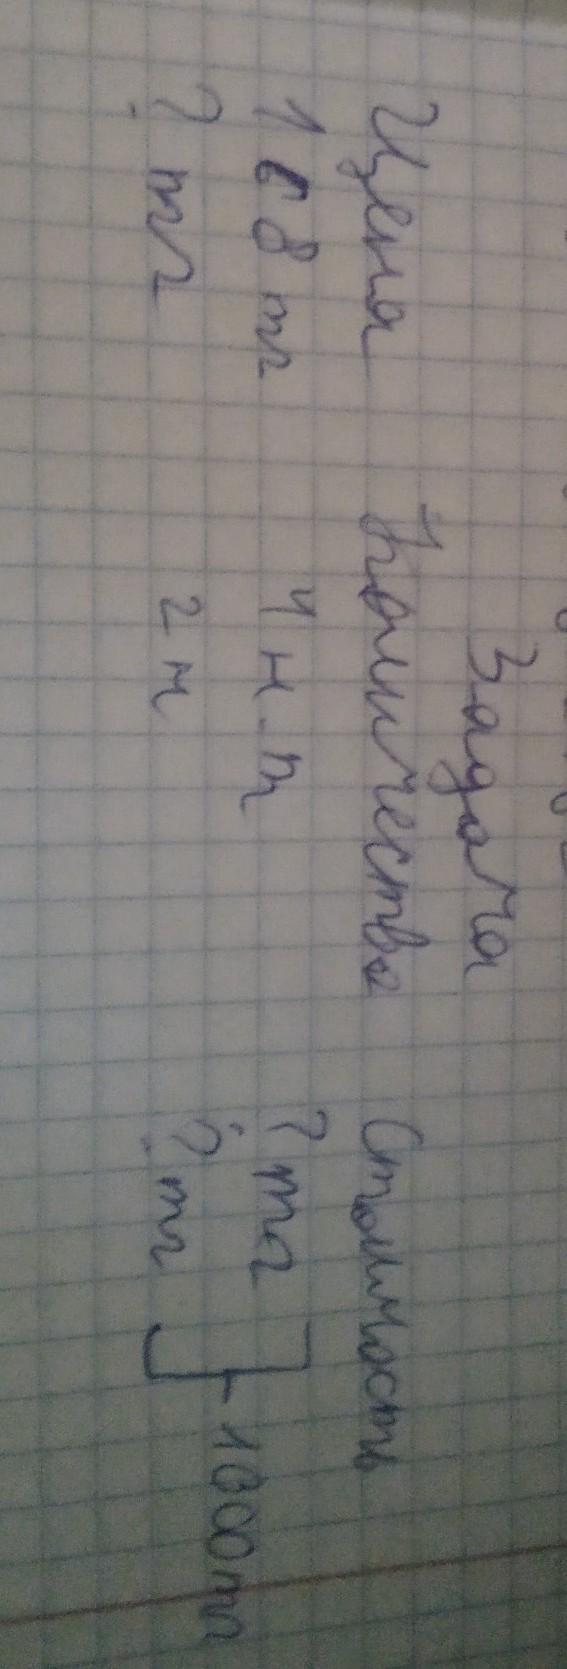 Задача
Цена Количество Стоимость
168 тг 4 н.т ? тг
? тг 2 н ? тг
1000 тг